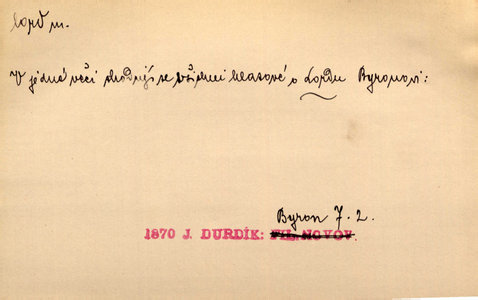 lord m.
V jedné věci shodují se všichni hlasové o Lordu Byronovi:
Byron 7. 2.
1870 J. DURDÍK: FIL. NOVOV.